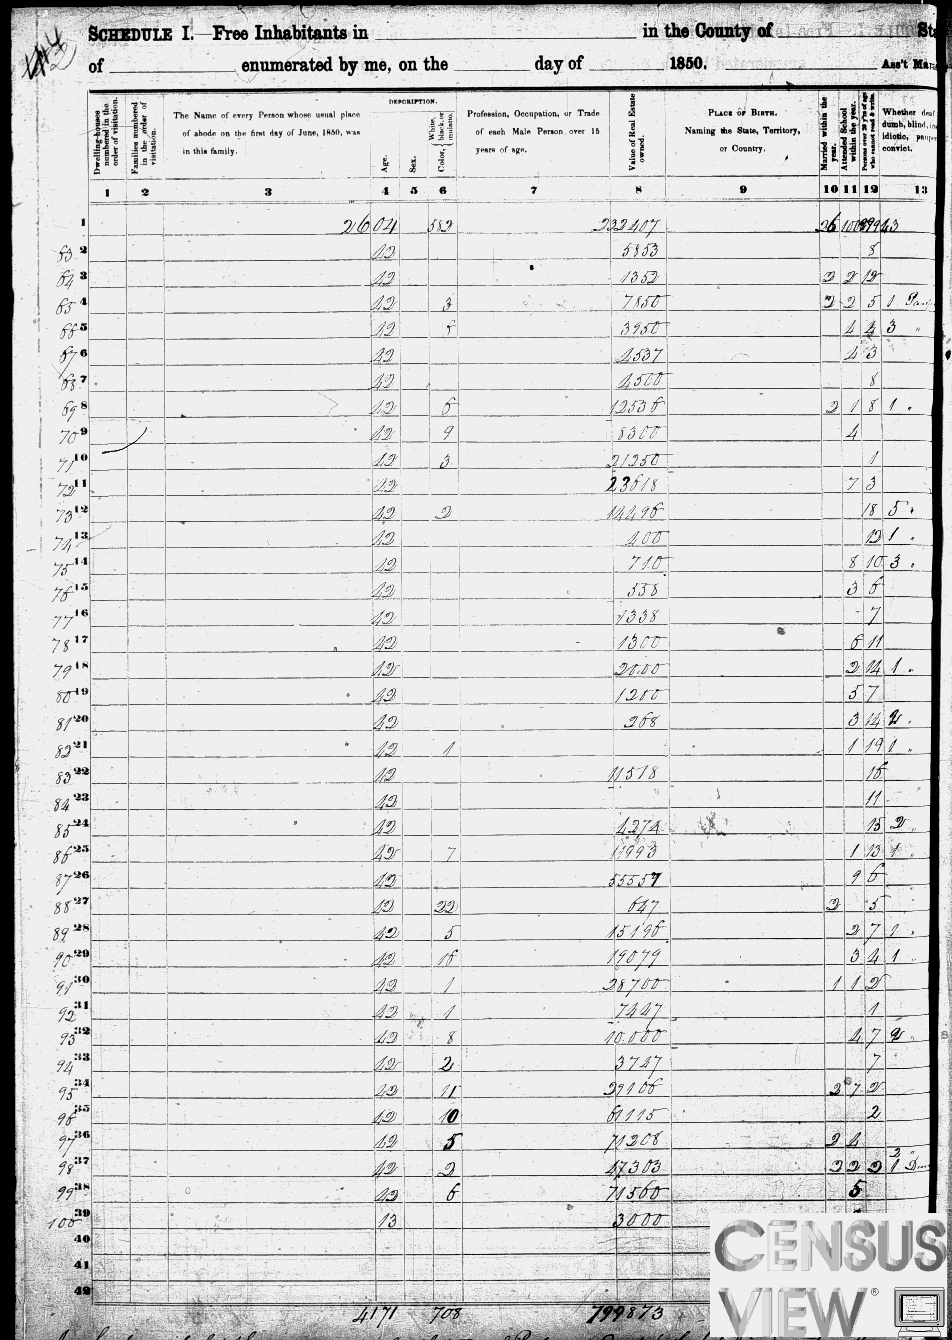 SCHEDULE I. Free Inhabitants in in the County of Sta
of enumerated by me, on the day of 1850. Ass't Mar
Dwelling-houses numbered in the order of visitation.
Families numbered in the order of visitation.
The Name of every Person whose usual place of abode on the first day of June, 1850, was in this family.
DESCRIPTION.
Age.
Sex.
Color, White, black, or mulatto.
Profession, Occupation, or Trade of each Male Person over 15 years of age.
Value of Real Estate owned.
PLACE OF BIRTH. Naming the State, Territory, or Country.
Married within the year.
Attended School within the year.
Persons over 20 y'rs of age who cannot read & write.
Whether deaf dumb, blind, idiotic, pauper convict.
1 2 3 4 5 6 7 8 9 10 11 12 13
1 2604 582 232407 26
63 2 42 5853 8
64 3 42 1352 2 2 12
65 4 42 3 7850 2 2 5 1
66 5 42 5 3950 4 4 3 "
67 6 42 4537 4 3
68 7 42 4500 8
69 8 42 6 12536 2 1 8 1 "
70 9 42 9 8300 4
71 10 42 3 21250 1
72 11 42 23618 7 3
73 12 42 2 14496 18 5 "
74 13 42 400 12 1 "
75 14 42 710 8 10 3 "
76 15 42 558 3 6
77 16 42 1338 7
78 17 42 1300 6 11
79 18 42 2000 2 14 1 "
80 19 42 1200 5 7
81 20 42 268 3 14 2 "
82 21 42 1 1 19 1 "
83 22 42 11518 16
84 23 42 11
85 24 42 4274 15 2 "
86 25 42 7 11993 1 13 1 "
87 26 42 55557 9 6
88 27 42 22 647 2 5
89 28 42 5 15196 2 7 1 "
90 29 42 16 19079 3 4 1 "
91 30 42 1 28700 1 1 2
92 31 42 1 7447 1
93 32 42 8 10.000 4 7 2 "
94 33 42 2 3747 7
95 34 42 11 29106 2 7 2
96 35 42 10 61115 2
97 36 42 5 71208 2 4
98 37 42 2 47303 2 2 2 1
99 38 42 6 71560 5
100 39 13 3000
40
41
42
4171 708 799873
CENSUS
VIEW®